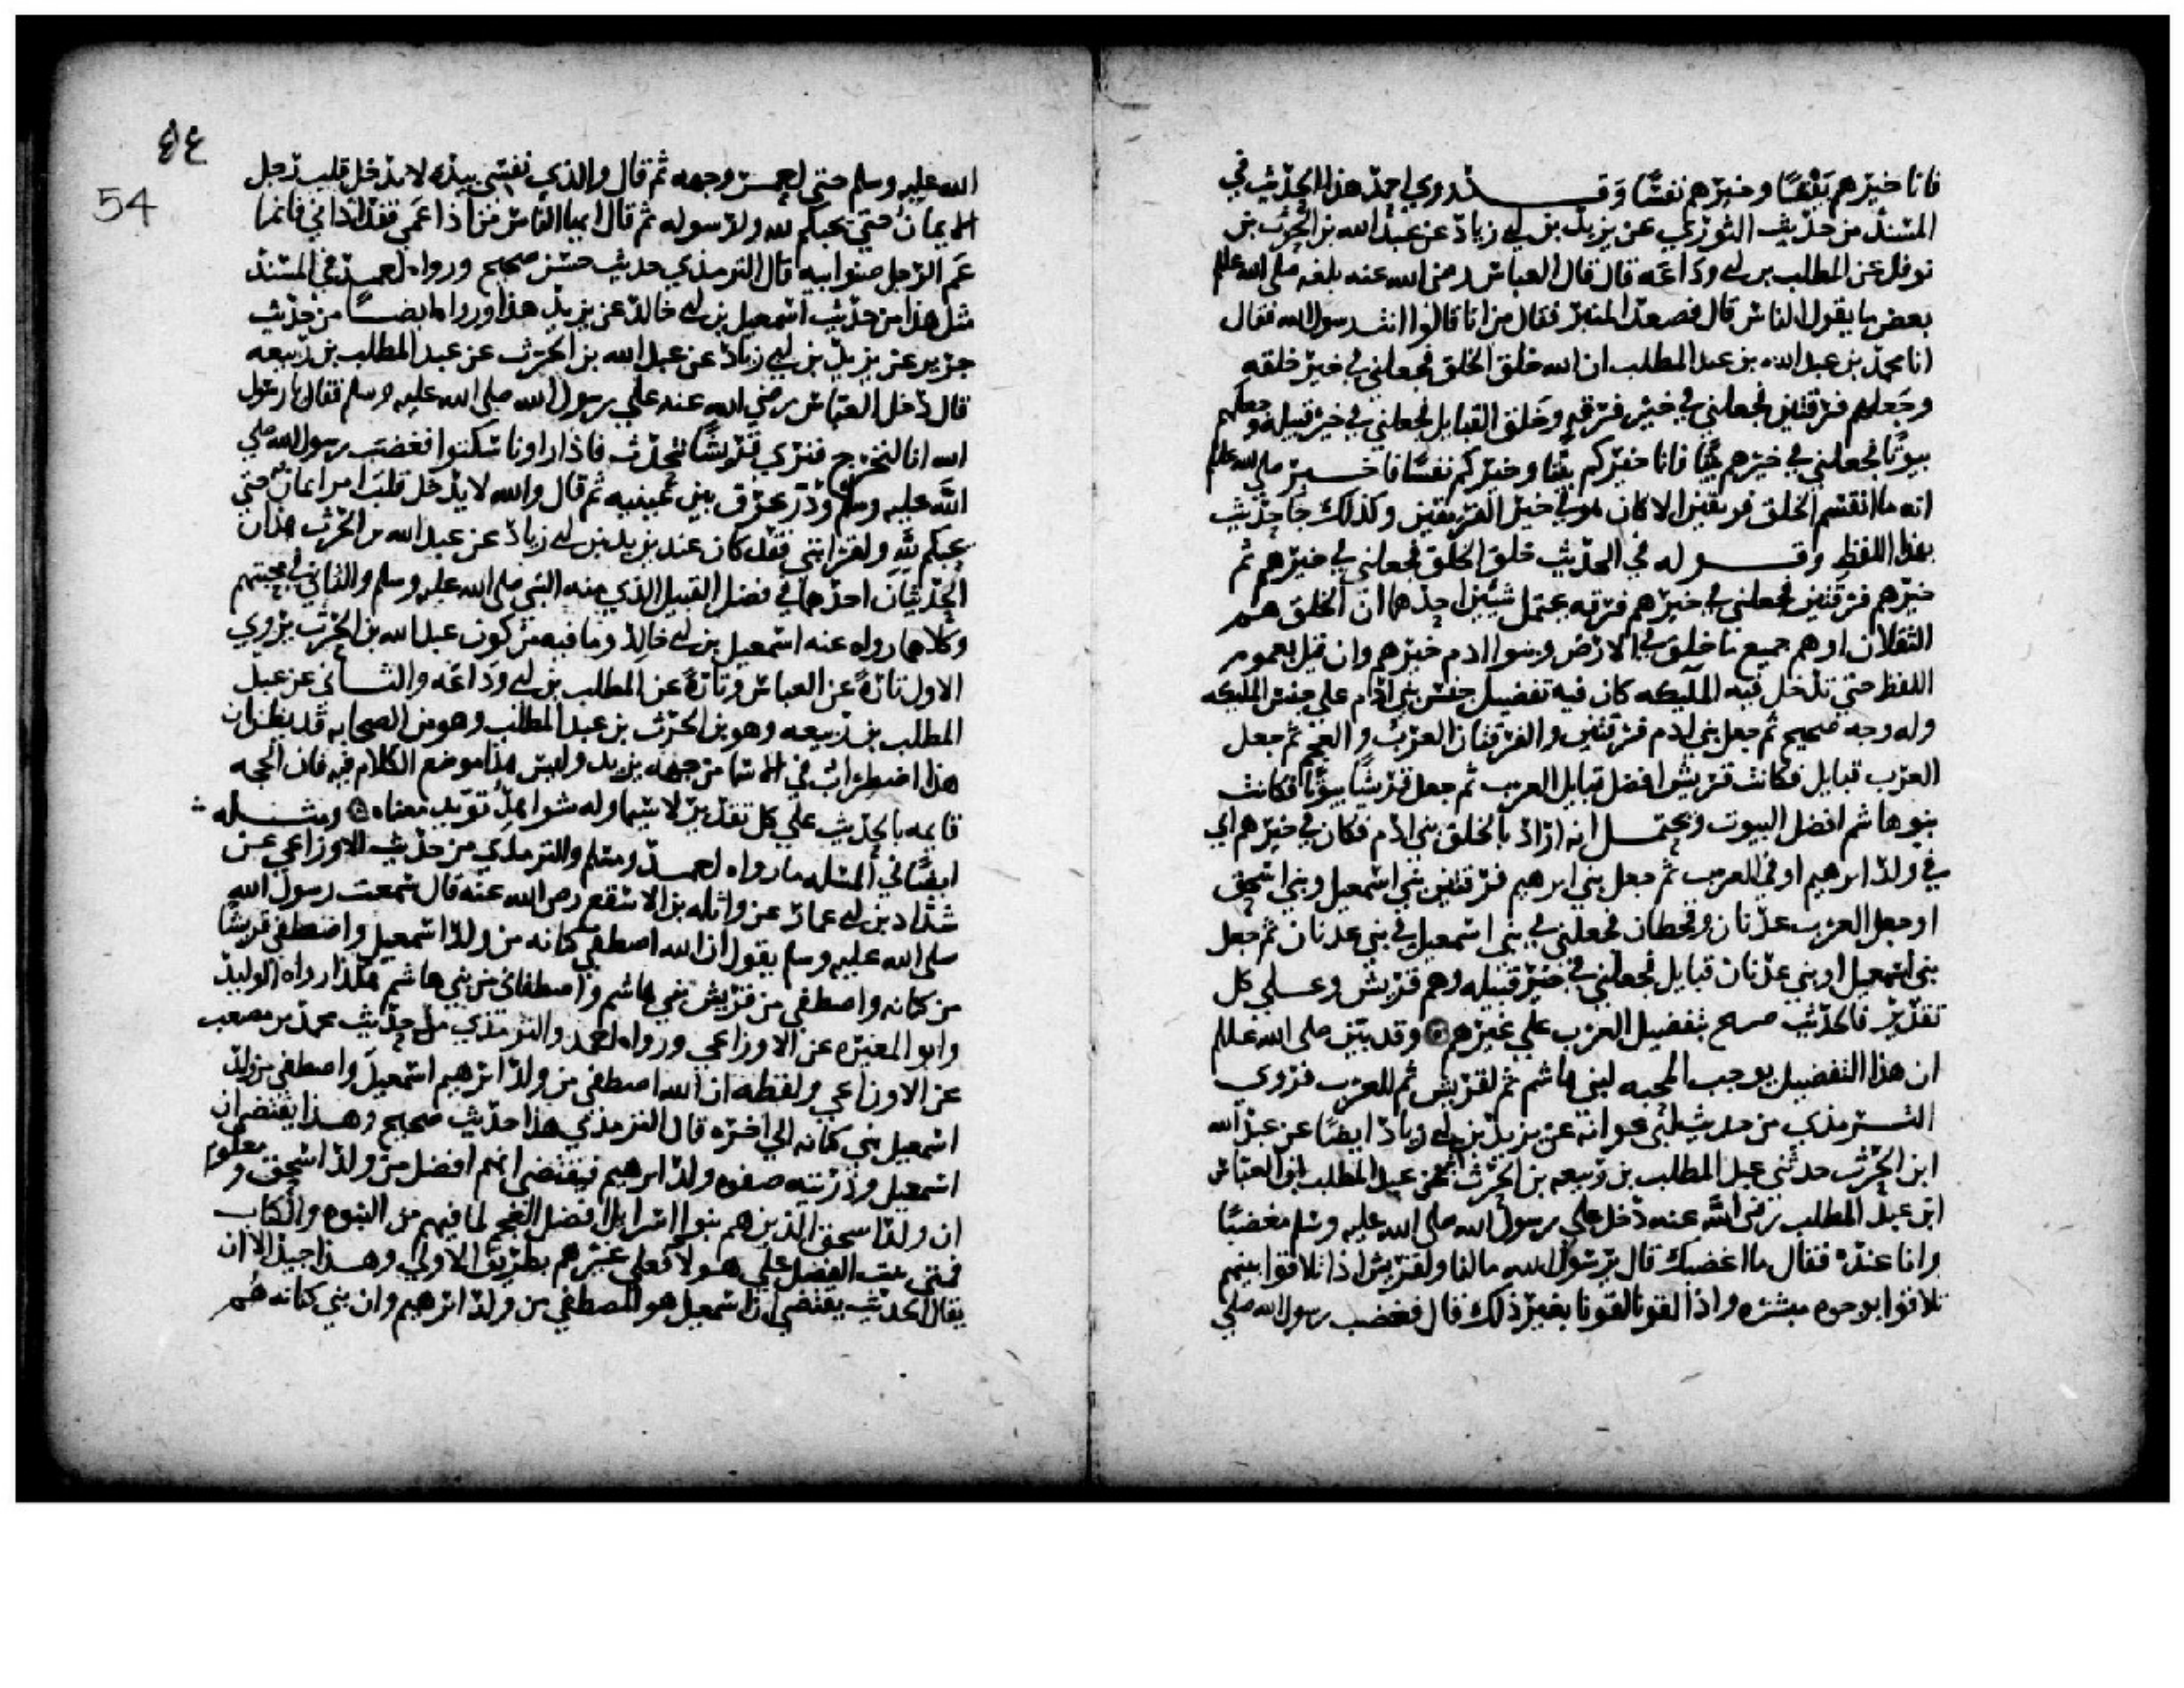 فانا خيرهم بيتا وخيرهم نفسا وقد روي احمد هذا الحديث في
المسند من حديث الثوري عن يزيد بن ابي زياد عن عبد الله بن الحرث بن
نوفل عن المطلب بن ابي وداعه قال قال العباس رضي الله عنه بلغه صلى الله عليه
بعض ما يقول الناس قال فصعد المنبر فقال من انا قالوا انت رسول الله فقال
انا محمد بن عبد الله بن عبد المطلب ان الله خلق الخلق فجعلني في خير خلقه
وجعلهم فرقتين فجعلني في خير فرقه وخلق القبايل فجعلني في خير قبيله وجعلهم
بيوتا فجعلني في خيرهم بيتا فانا خيركم بيتا وخيركم نفسا فاخبر صلى الله عليه
انه ما انقسم الخلق فريقين الا كان هو في خير الفريقين وكذلك جا حديث
بهذا اللفظ وقوله في الحديث خلق الخلق فجعلني في خيرهم ثم
خيرهم فرقتين فجعلني في خيرهم فرقه يحتمل شيئين احدهما ان الخلق هم
الثقلان او هم جميع ما خلق في الارض وبنوا ادم خيرهم وان قيل بعموم
اللفظ حتي تدخل فيه المليكه كان فيه تفضيل جنس بني ادم علي جنس المليكه
وله وجه صحيح ثم جعل بني ادم فرقتين والفرقتان العرب والعجم ثم جعل
العرب قبايل فكانت قريش افضل قبايل العرب ثم جعل قريشا بيوتا فكانت
بنوهاشم افضل البيوت ويحتمل انه اراد بالخلق بني ادم فكان في خيرهم اي
في ولد ابرهيم او في العرب ثم جعل بني ابرهيم فرقتين بني اسمعيل وبني اسحق
او جعل العرب عدنان وقحطان فجعلني في بني اسمعيل في بني عدنان ثم جعل
بني اسمعيل او بني عدنان قبايل فجعلني في خير قبيله وهم قريش وعلي كل
تقدير فالحديث صريح بتفضيل العرب علي غيرهم وقد بين صلى الله عليه
ان هذا التفضيل يوجب المحبه لبني هاشم ثم لقريش ثم للعرب فروي
الترمذي من حديث ابي عوانه عن يزيد بن ابي زياد ايضا عن عبد الله
ابن الحرث حدثني عبد المطلب بن ربيعه بن الحرث بن عبد المطلب ان العباس
ابن عبد المطلب رضي الله عنه دخل علي رسول الله صلى الله عليه وسلم مغضبا
وانا عنده فقال ما اغضبك قال يرسول الله ما لنا ولقريش اذا تلاقوا بينهم
تلاقوا بوجوه مبشره واذا لقونا لقونا بغير ذلك قال فغضب رسول الله صلي
٥٤
54
الله عليه وسلم حتي احمر وجهه ثم قال والذي نفسي بيده لا يدخل قلب رجل
الايمان حتي يحبكم لله ولرسوله ثم قال ايها الناس من اذا عمي فقد اذاني فانما
عم الرجل صنو ابيه قال الترمذي حديث حسن صحيح ورواه احمد في المسند
مثل هذا من حديث اسمعيل بن ابي خالد عن يزيد هذا ورواه ايضا من حديث
جرير عن يزيد بن ابي زياد عن عبد الله بن الحرث عن عبد المطلب بن ربيعه
قال دخل العباس رضي الله عنه علي رسول الله صلى الله عليه وسلم فقال يا رسول
الله انا لنخرج فنري قريشا تتحدث فاذا راونا سكتوا فغضب رسول الله صلي
الله عليه وسلم ودر عرق بين عينيه ثم قال والله لا يدخل قلب امر ايمان حتي
يحبكم لله ولقرابتي فقد كان عند يزيد بن ابي زياد عن عبد الله بن الحرث هذان
الحديثان احدهما في فضل القبيل الذي منه النبي صلى الله عليه وسلم والثاني في محبتهم
وكلاهما رواه عنه اسمعيل بن ابي خالد وما فيه من كون عبد الله بن الحرث يروي
الاول تارة عن العباس وتارة عن المطلب بن ابي وداعه والثاني عن عبد
المطلب بن ربيعه وهو بن الحرث بن عبد المطلب وهو من الصحابه قد يظن ان
هذا اضطراب في الاسما من جهه يزيد وليس هذا موضع الكلام فيه فان الحجه
قايمه بالحديث علي كل تقدير لا سيما وله شواهد تويد معناه ومثله
ايضا في المسله ما رواه احمد ومسلم والترمذي من حديث الاوزاعي عن
شداد بن ابي عمار عن واثله بن الاسقع رضي الله عنه قال سمعت رسول الله
صلى الله عليه وسلم يقول ان الله اصطفي كنانه من ولد اسمعيل واصطفي قريشا
من كنانه واصطفي من قريش بني هاشم واصطفاني من بني هاشم هكذا رواه الوليد
وابو المغيره عن الاوزاعي ورواه احمد والترمذي من حديث محمد بن مصعب
عن الاوزاعي ولفظه ان الله اصطفي من ولد ابرهيم اسمعيل واصطفي من ولد
اسمعيل بني كنانه الي اخره قال الترمذي هذا حديث صحيح وهذا يقتضي ان
اسمعيل وذريته صفوه ولد ابرهيم فيقتضي انهم افضل من ولد اسحق ومعلوم
ان ولد اسحق الذين هم بنوا اسرايل افضل العجم لما فيهم من النبوه والكتاب
فمتي ثبت الفضل علي هولا فعلي غيرهم بطريق الاولي وهذا جيد الا ان
يقال الحديث يقتضي ان اسمعيل هو المصطفي من ولد ابرهيم وان بني كنانه هم